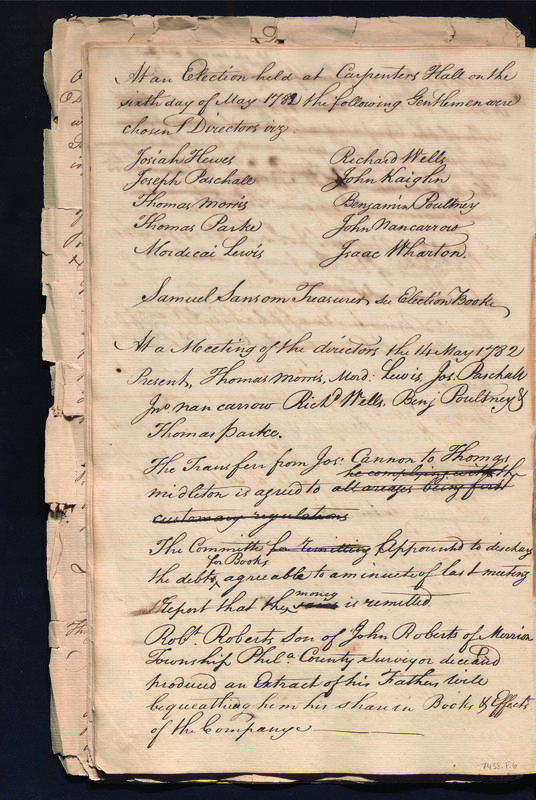 At an Election held at Carpenters Hall on the
sixth day of May 1782 the following Gentlemen were
chosen Directors viz
Josiah Hewes Richard Wells
Joseph Paschall John Kaighn
Thomas Morris Benjamin Poultney
Thomas Parke John Nancarrow
Mordicai Lewis Isaac Wharton.
Samuel Sansom Treasurer see Election Book
At a Meeting of the directors the 14 May 1782
Present, Thomas Morris, Mord: Lewis, Jos. Paschall
Jno Nancarrow Richd Wells, Benj Poultney &
Thomas Parke.
The Transferr from Jos: Cannon to Thomas
he complying with the
midleton is agreed to all arrears being first
customary regulations
The Committe for remitting Appointed to discharg
for Books
the debt, agreeable to a minute of last meeting
money
Report that the is remitted
Robt. Roberts, Son of John Roberts of Merrion
Township Phila. County Surveyor deceasd
produced an Extract of his Fathers, will
bequeathing him his share in Books & Effects
of the Company
7435.F.6